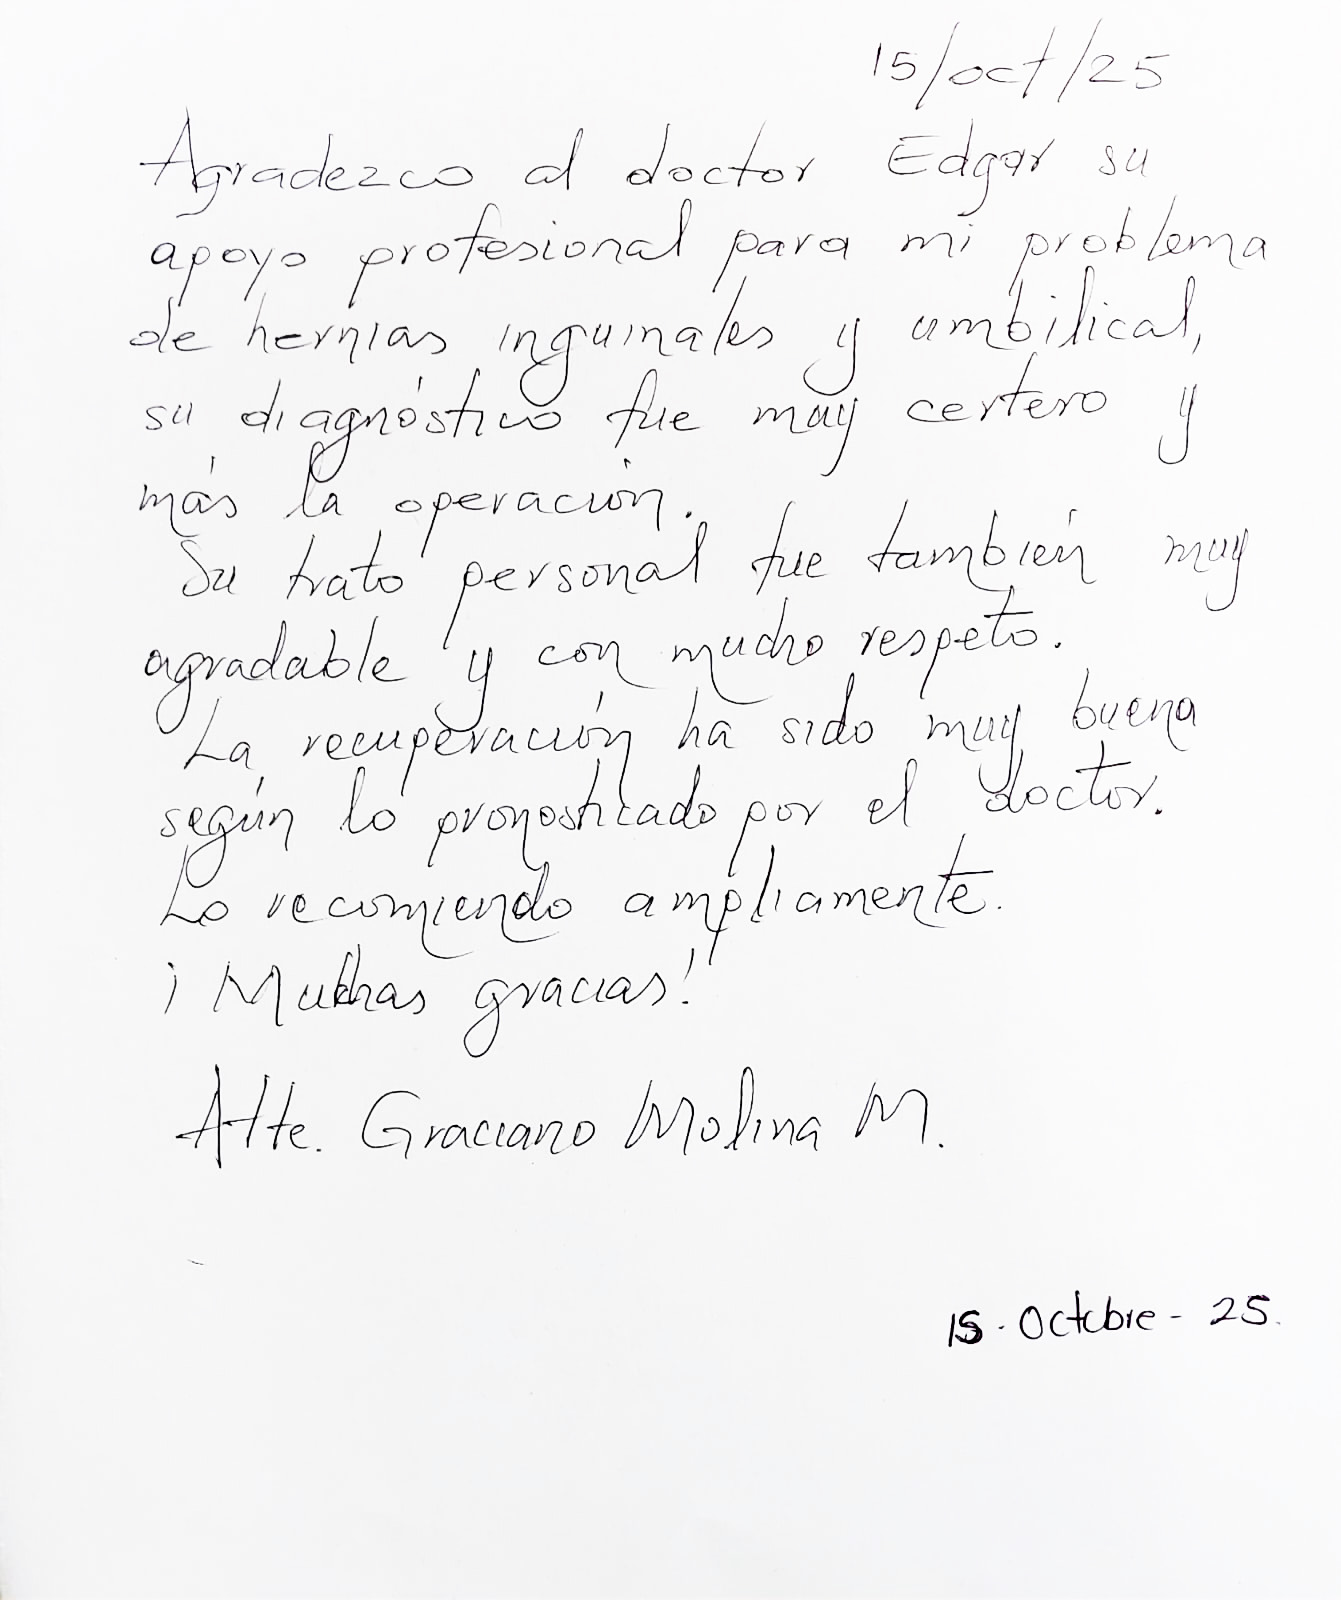 15/oct/25
Agradezco al doctor Edgar su
apoyo profesional para mi problema
de hernias inguinales y umbilical,
su diagnóstico fue muy certero y
más la operación.
Su trato personal fue también muy
agradable y con mucho respeto.
La recuperación ha sido muy buena
según lo pronosticado por el doctor.
Lo recomiendo ampliamente.
¡Muchas gracias!
Atte. Graciano Molina M.
15 - Octubre - 25.